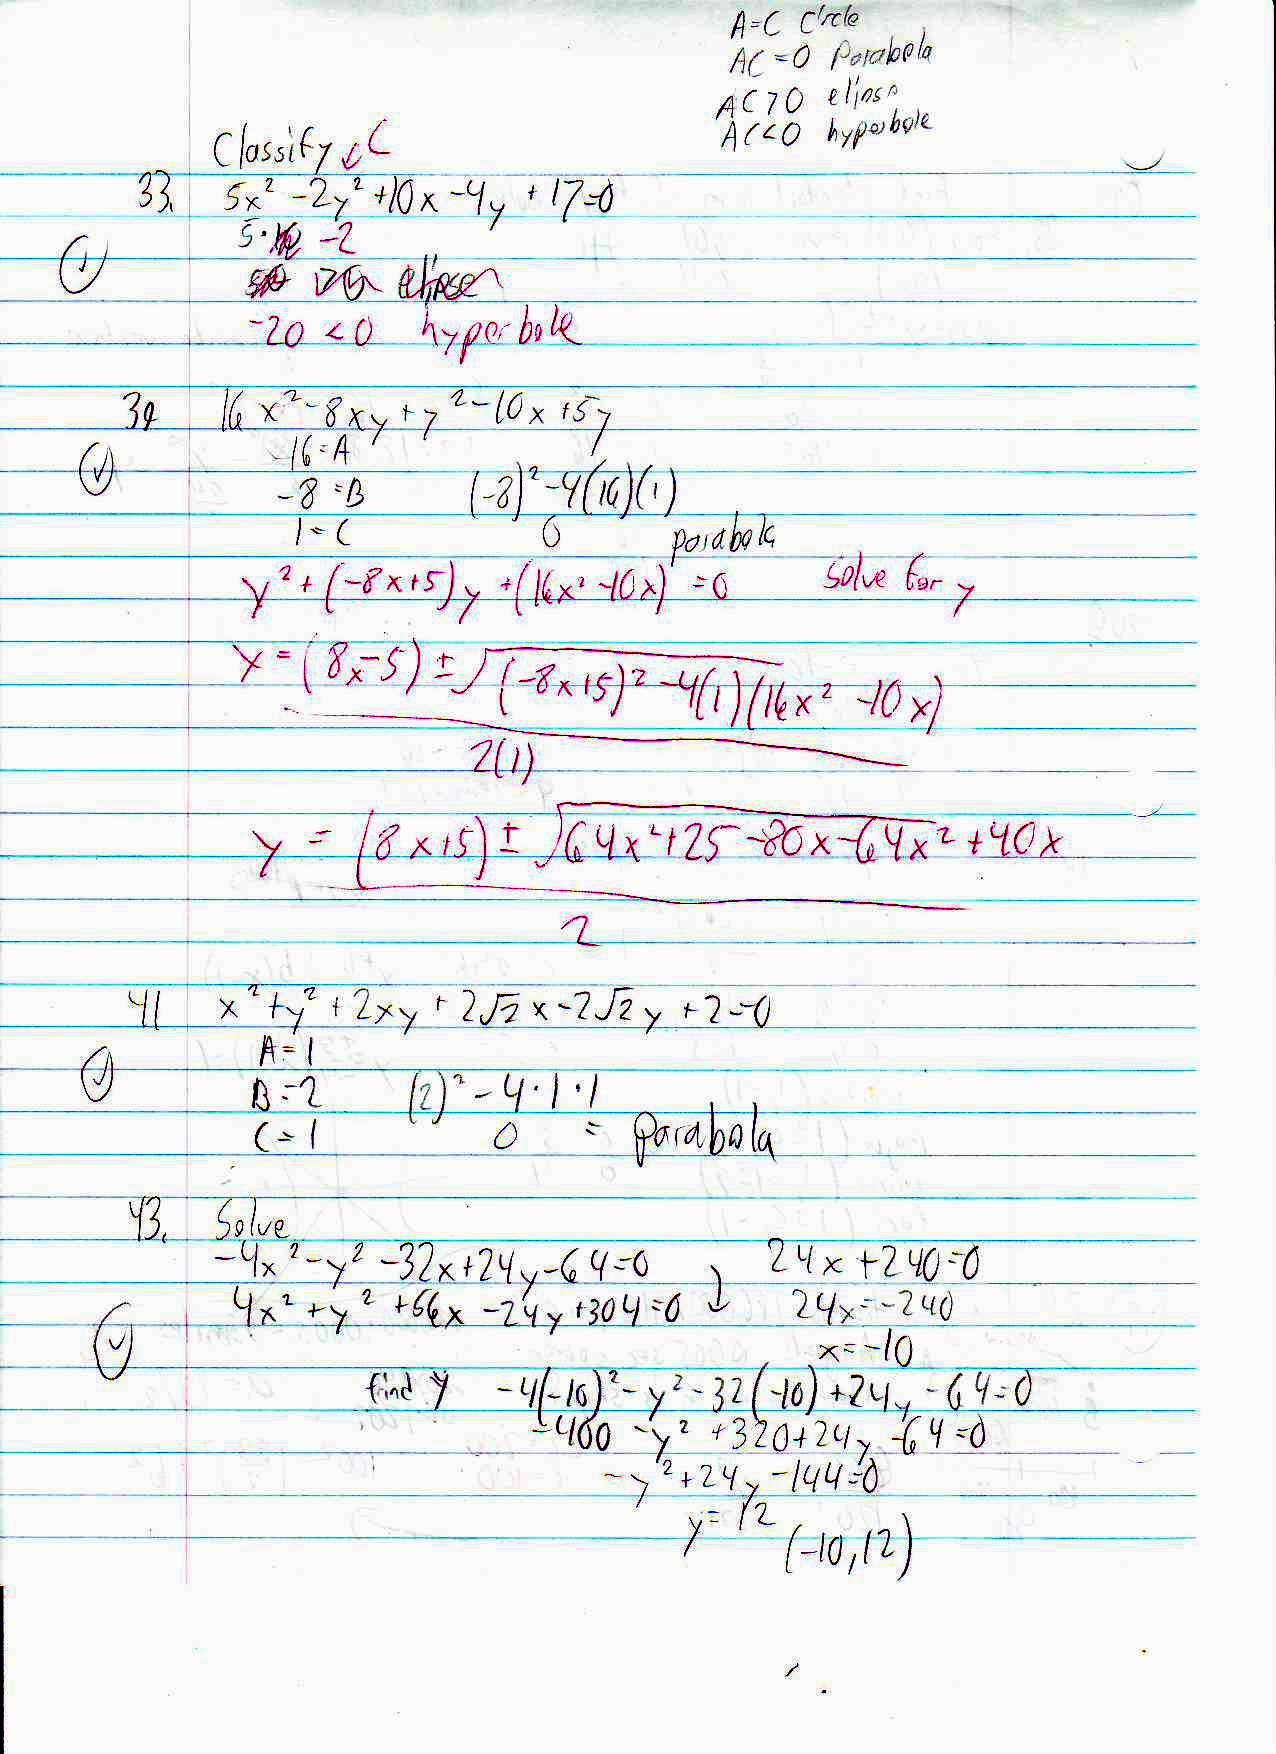 A=C Circle
AC=0 Parabola
AC>0 elipse
AC<0 hyperbole
Classify ↓ C
33. 5x² -2y² +10x -4y +17=0
5· -2
elipse
-20 <0 hyperbole
39 16x² -8xy + y² -10x +5y
16=A
-8=B (-8)² -4(16)(1)
1=C 0 parabola
y² + (-8x+5)y +(16x² -10x) =0 Solve for y
y = (8x-5) ± √(-8x+5)² -4(1)(16x² -10x)
2(1)
y = (8x+5) ± √64x²+25 -80x -64x² +40x
2
41 x² +y² + 2xy + 2√2x -2√2y +2=0
A=1
B=2 (2)² - 4·1·1
C=1 0 = parabola
43. Solve
-4x² -y² -32x+24y-64=0 24x +240=0
4x² +y² +56x -24y +304=0 24x=-240
x=-10
find y -4(-10)² -y² -32(-10) +24y -64=0
-400 -y² +320+24y -64=0
-y² +24y -144=0
y=12
(-10,12)